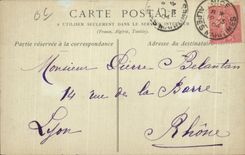 CARTE POSTALE
A UTILISER SEULEMENT DANS LE SERVICE INTÉRIEUR
(France, Algérie, Tunisie).
Partie réservée à la correspondance
Adresse du destinataire
Monsieur Pierre Belantan
14 rue de la Barre
Lyon
Rhône
NICE
ALPES MARITIMES